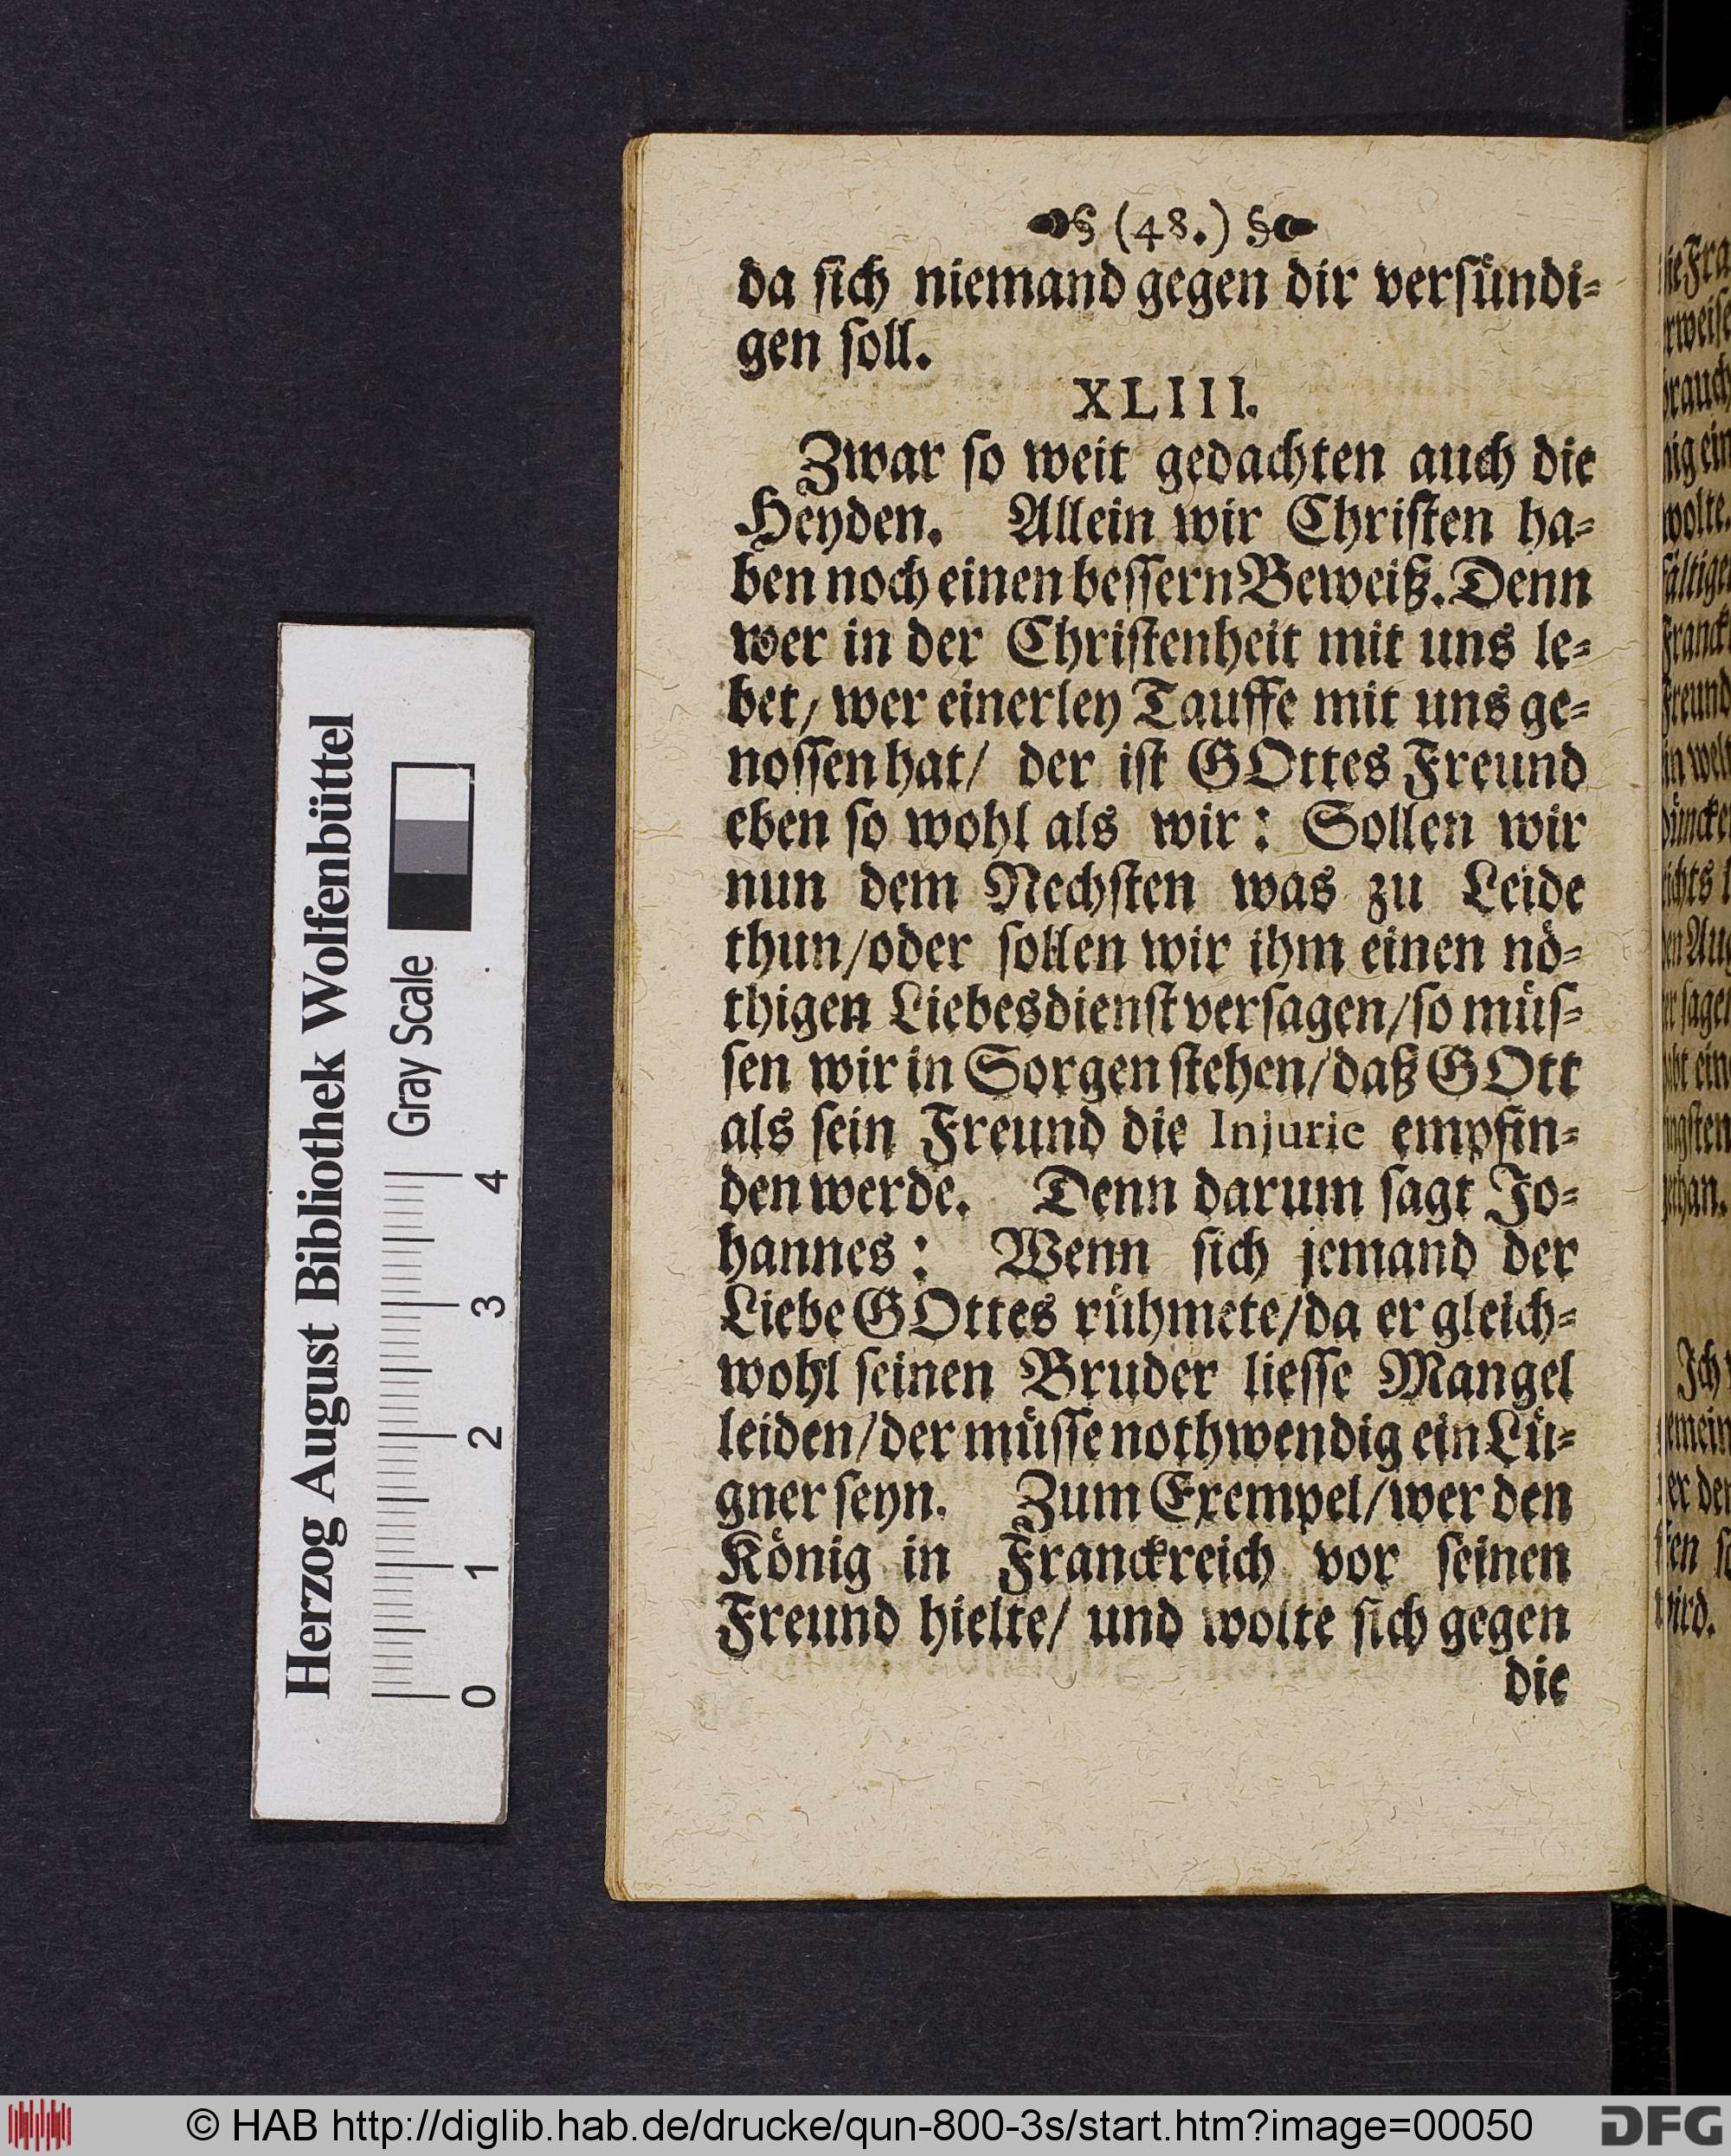 (48.)
da sich niemand gegen dir versündi-
gen soll.
XLIII.
Zwar so weit gedachten auch die
Heyden. Allein wir Christen ha-
ben noch einen bessern Beweiß. Denn
wer in der Christenheit mit uns le-
bet/ wer einerley Tauffe mit uns ge-
nossen hat/ der ist GOttes Freund
eben so wohl als wir: Sollen wir
nun dem Nechsten was zu Leide
thun/oder sollen wir ihm einen nö-
thigen Liebesdienst versagen/so müs-
sen wir in Sorgen stehen/daß GOtt
als sein Freund die Injurie empfin-
den werde. Denn darum sagt Jo-
hannes: Wenn sich jemand der
Liebe GOttes rühmete/da er gleich-
wohl seinen Bruder liesse Mangel
leiden/der müsse nothwendig ein Lü-
gner seyn. Zum Exempel/wer den
König in Franckreich vor seinen
Freund hielte/ und wolte sich gegen
die
Herzog August Bibliothek Wolfenbüttel
Gray Scale
0 1 2 3 4
© HAB http://diglib.hab.de/drucke/qun-800-3s/start.htm?image=00050
DFG